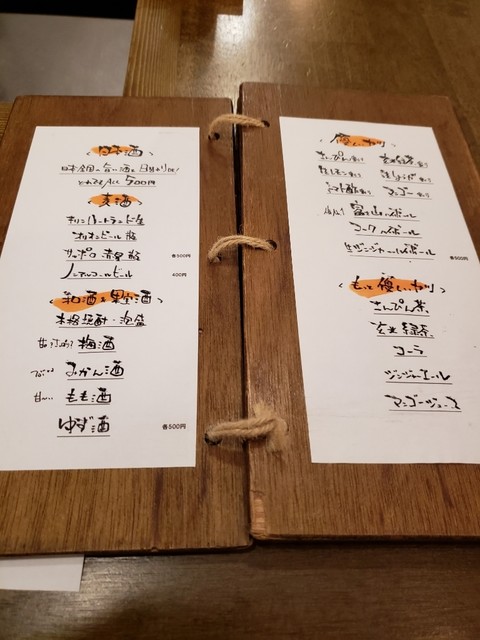 日本酒
日本全国の旨い酒を日替りで!
どれでもALL 500円
麦酒
キリンハートランド生
オリオンビール 瓶
サッポロ 赤星 瓶
各500円
ノンアルコールビール
400円
和酒&果実酒
本格焼酎・泡盛
梅酒
みかん酒
甘〜い もも酒
ゆず酒
各500円
優しい わり
さんぴん茶割り 玄米緑茶割り
生レモン割り 生しょうが割り
トマト酢割り マンゴー割り
富士山ハイボール
コークハイボール
生ジンジャーハイボール
各500円
もっと優しい わり
さんぴん茶
玄米緑茶
コーラ
ジンジャエール
マンゴージュース